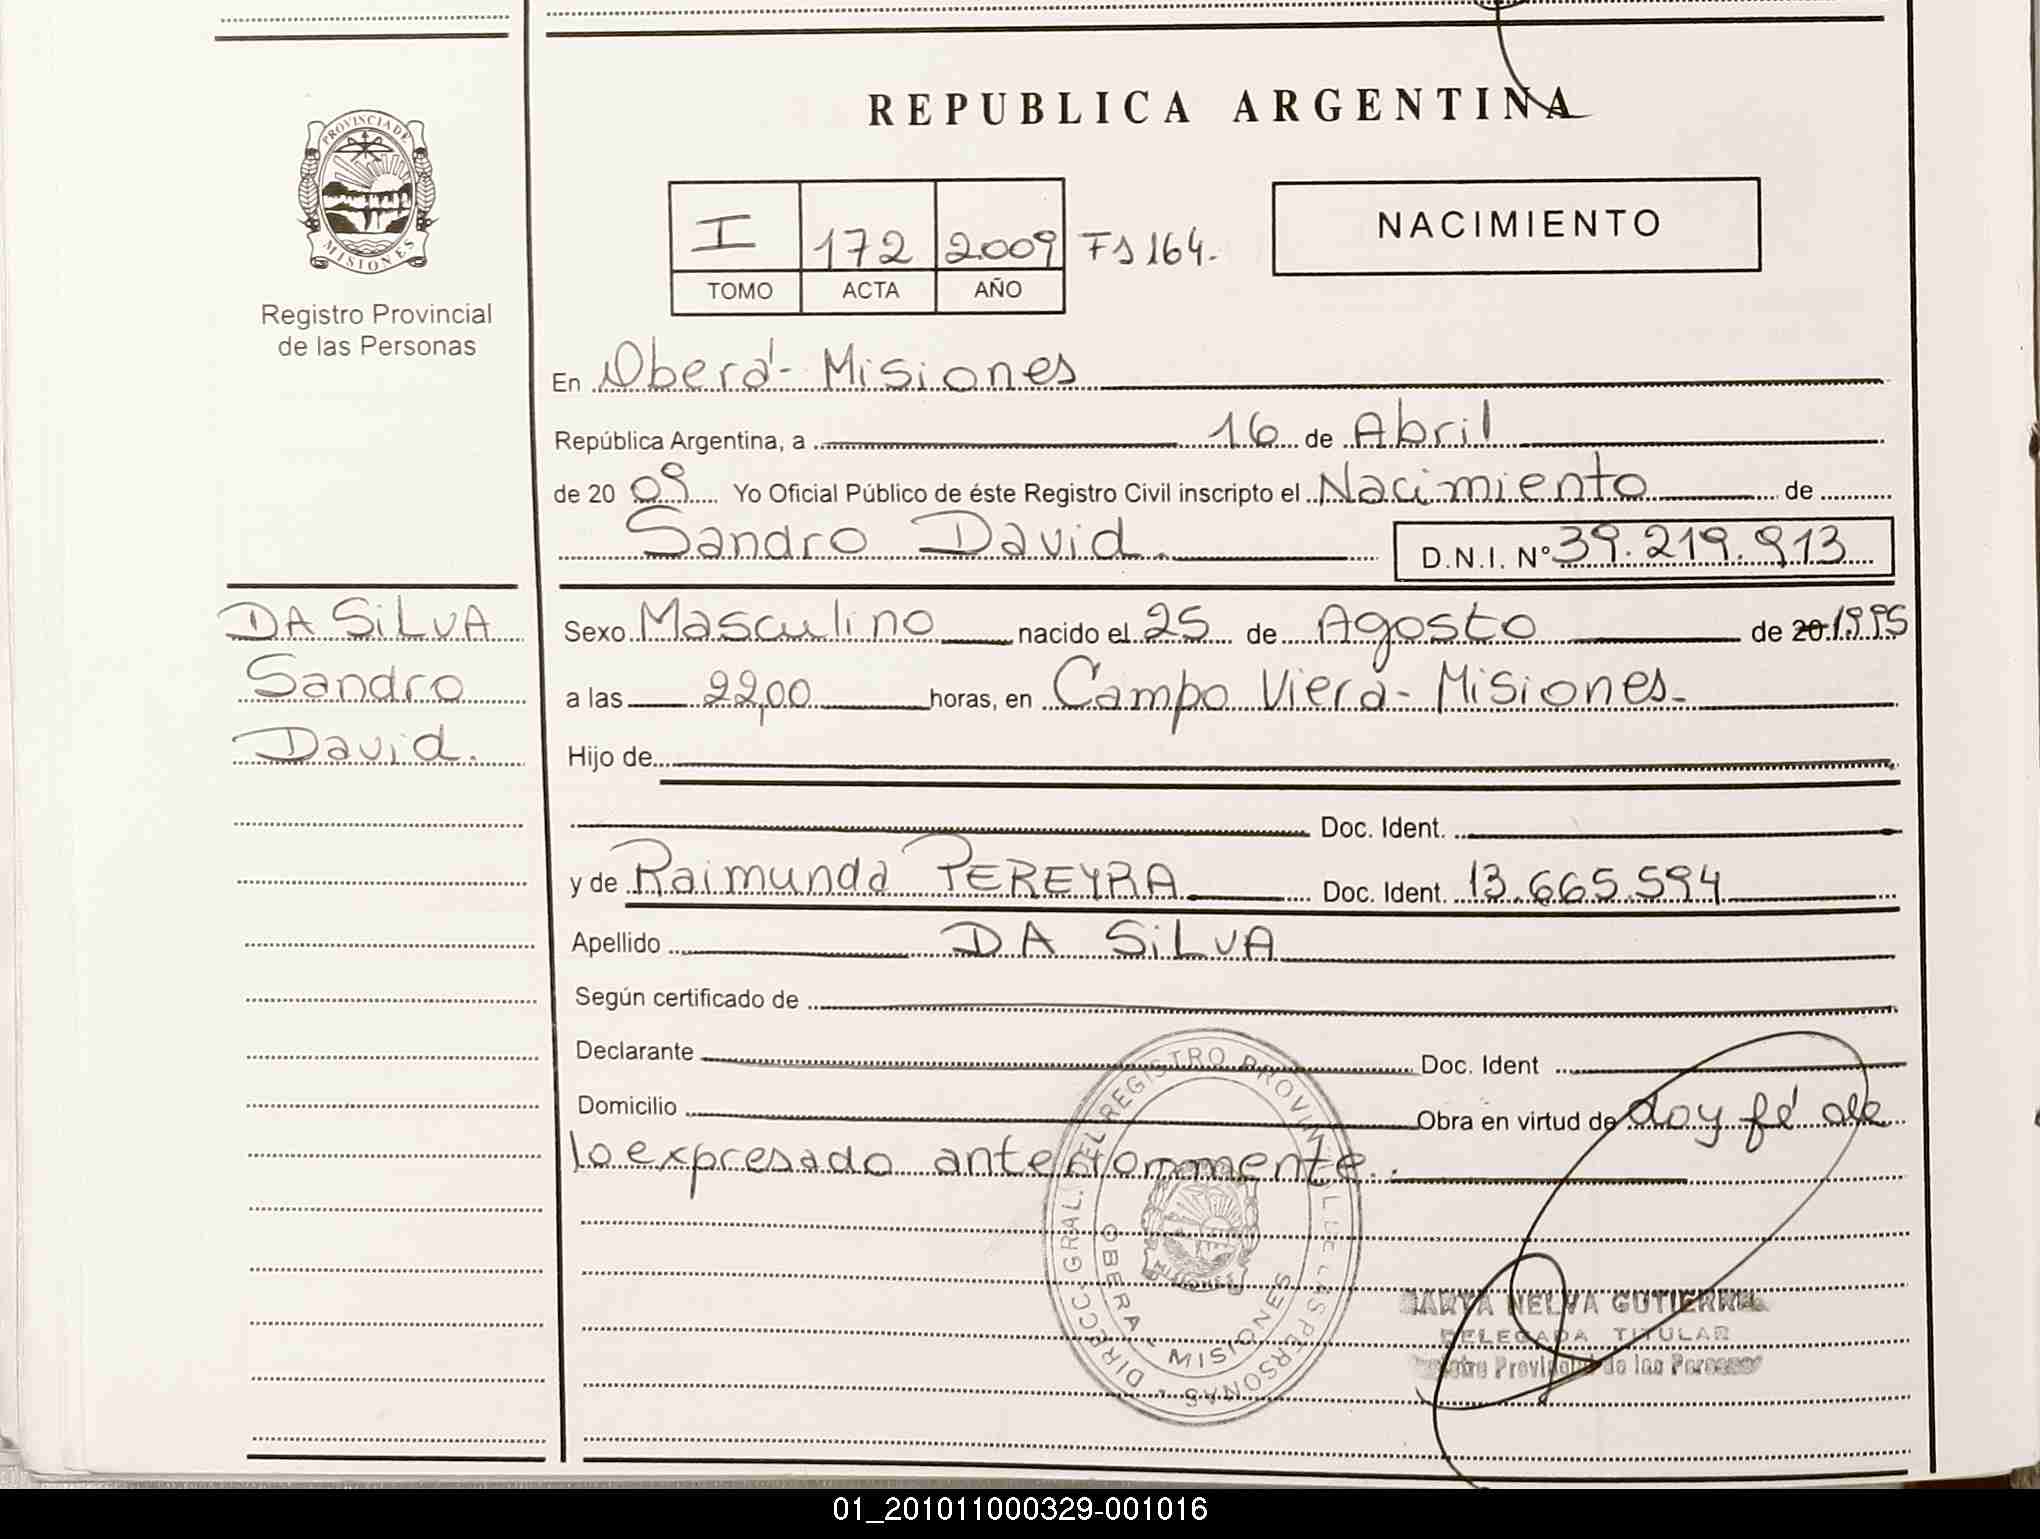 REPUBLICA ARGENTINA
PROVINCIA DE
MISIONES
Registro Provincial
de las Personas
I 172 2009 Fs 164.
TOMO ACTA AÑO
NACIMIENTO
En Oberá - Misiones
República Argentina, a 16 de Abril
de 20 09 Yo Oficial Público de éste Registro Civil inscripto el Nacimiento de
Sandro David. D.N.I. Nº 39.219.913
DA SiLVA
Sandro
David.
Sexo Masculino nacido el 25 de Agosto de 20 1995
a las 22,00 horas, en Campo Viera - Misiones.
Hijo de
Doc. Ident.
y de Raimunda PEREYRA Doc. Ident. 13.665.594
Apellido DA SiLVA
Según certificado de
Declarante Doc. Ident
Domicilio Obra en virtud de doy fé de
lo expresado anteriormente.
DIRECC. GRAL. DEL REGISTRO PROVINCIAL DE LAS PERSONAS
OBERA - MISIONES
MISIONES
NELVA GUTIERRE
DELEGADA TITULAR
Provincial de las Personas
01_201011000329-001016